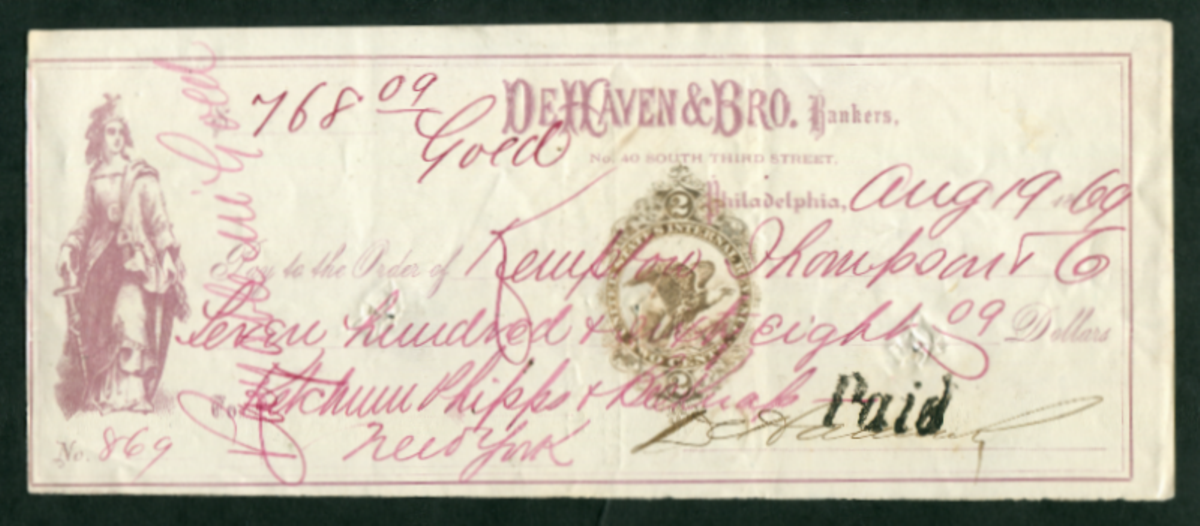 768 09
Gold
DEHAVEN & BRO. Bankers,
No. 40 SOUTH THIRD STREET,
Philadelphia, Aug 19 1869
Pay to the Order of Kempton Thompson & Co
Seven hundred & sixty eight 09 Dollars
To Ketchum Phipps & Belknap
New York
No. 869
Paid
2
INTERNAL
2
Gold